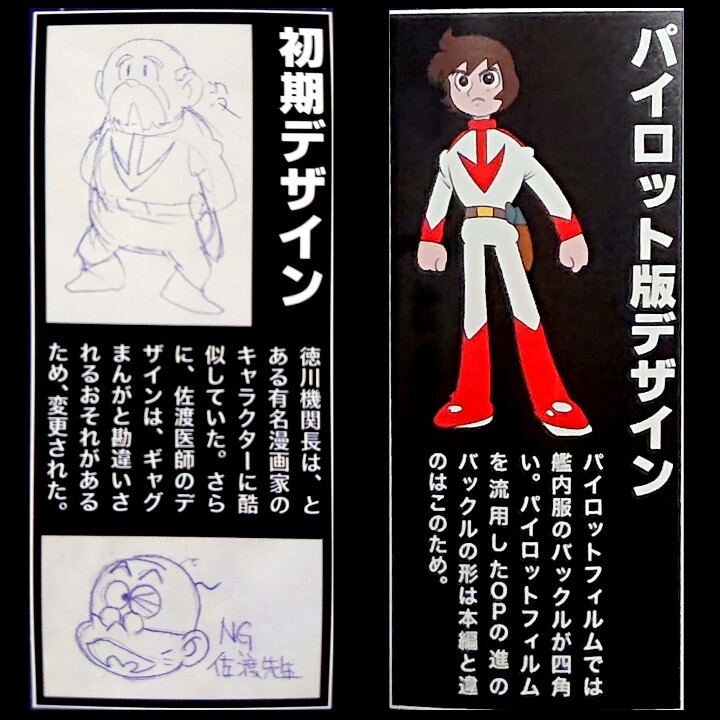 初期デザイン
徳川機関長は、と
ある有名漫画家の
キャラクターに酷
似していた。さら
に、佐渡医師のデ
ザインは、ギャグ
まんがと勘違いさ
れるおそれがある
ため、変更された。
NG
佐渡先生
パイロット版デザイン
パイロットフィルムでは
艦内服のバックルが四角
い。パイロットフィルム
を流用したOPの進の
バックルの形は本編と違
のはこのため。